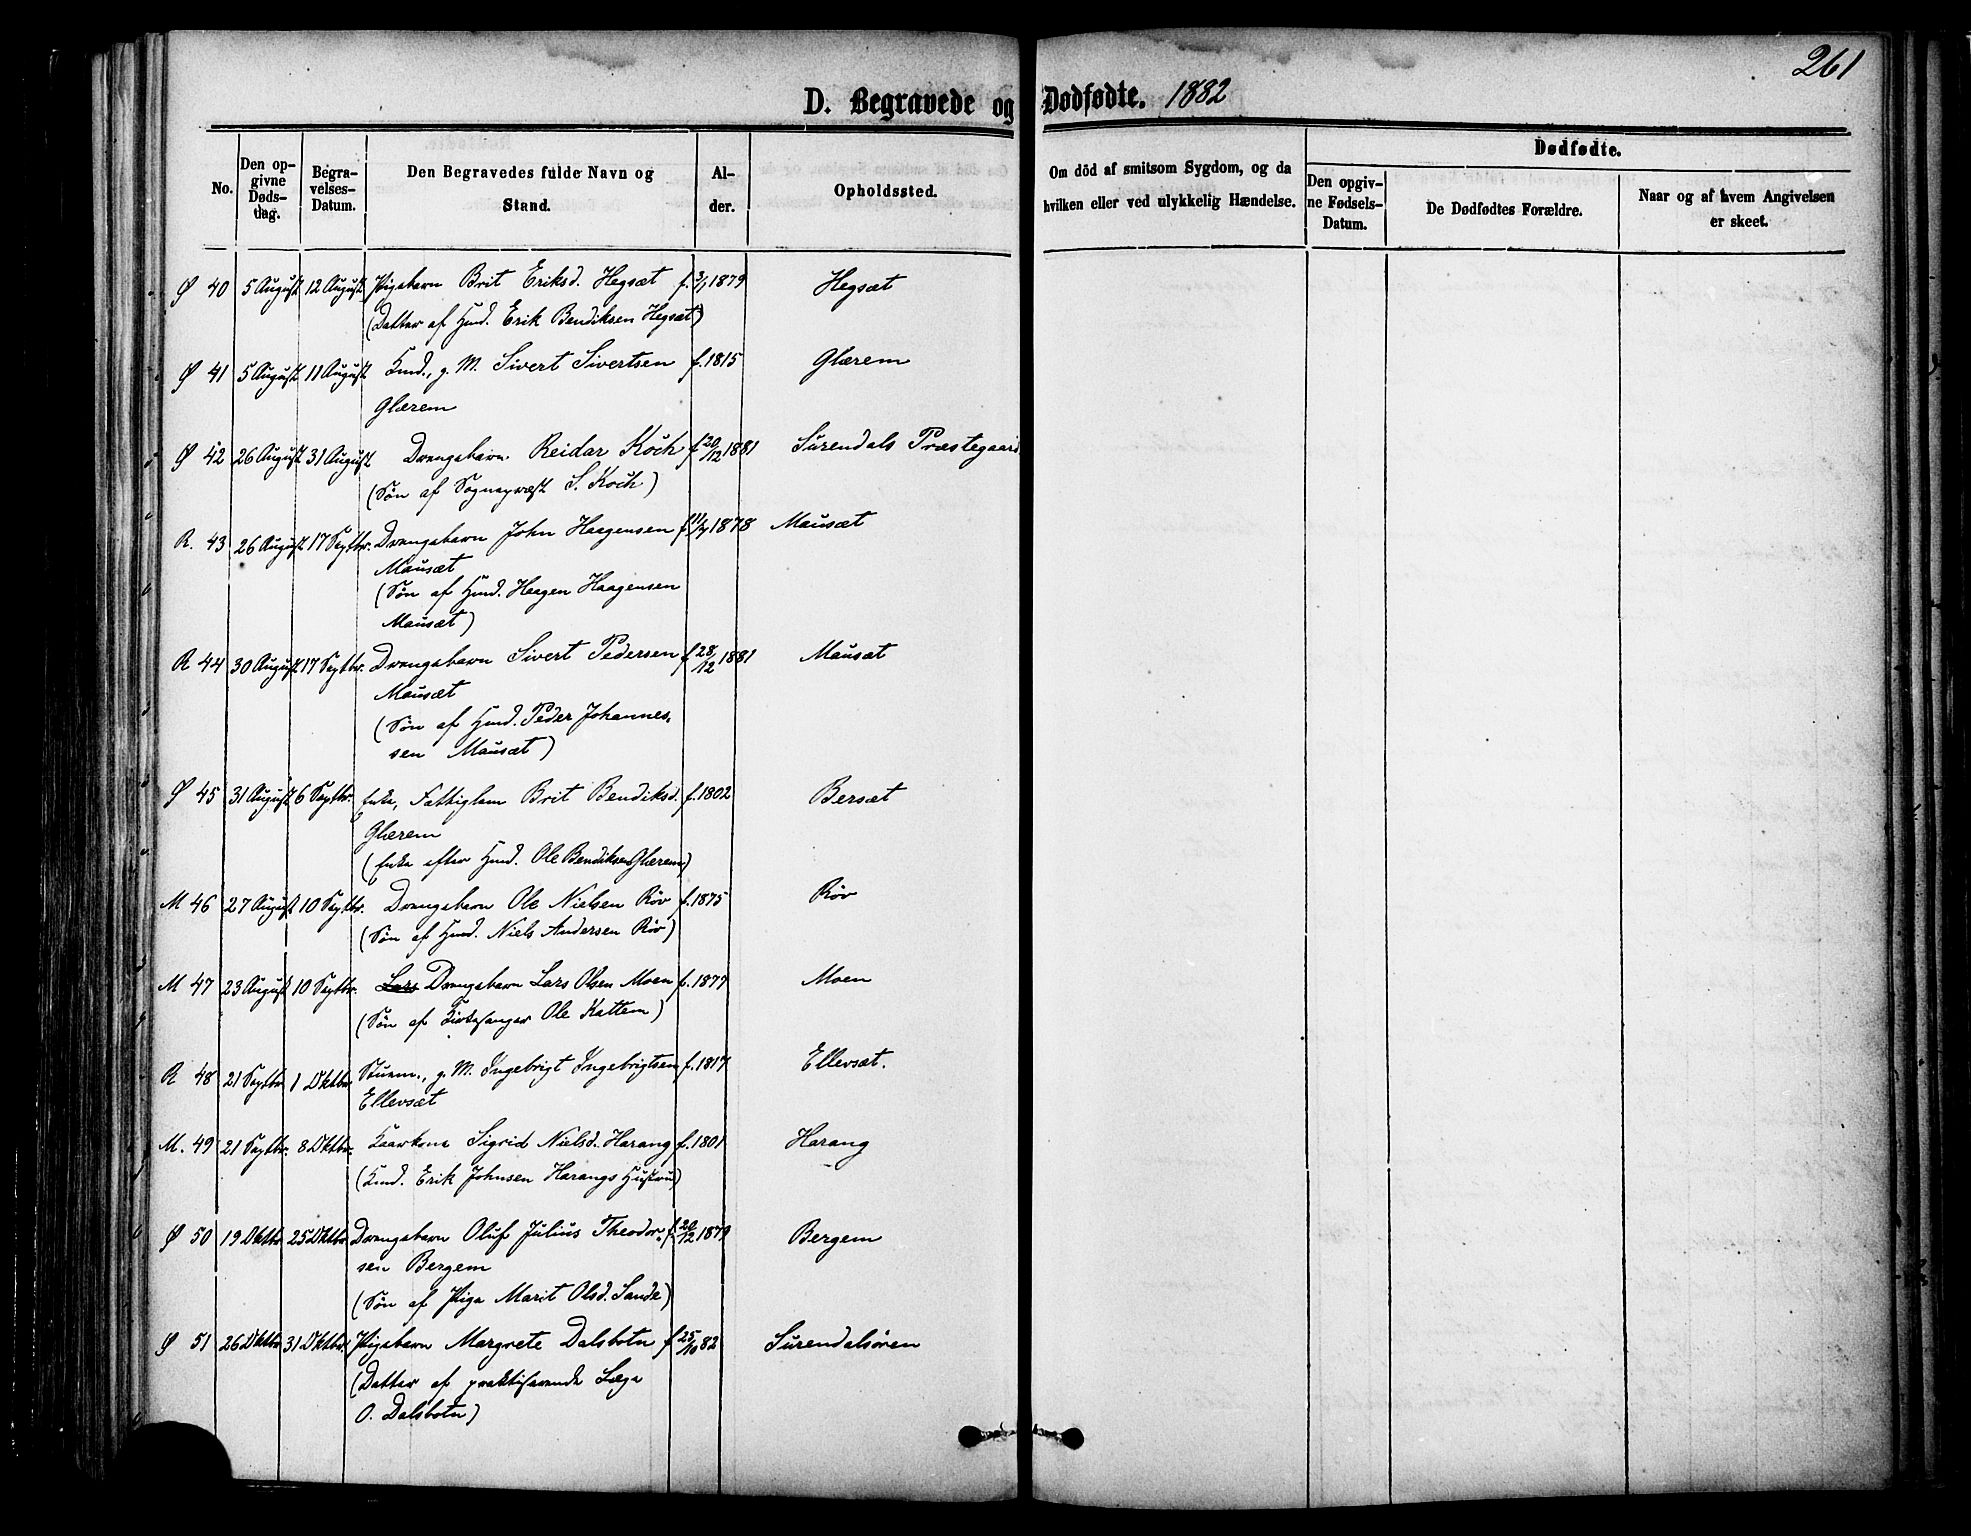 261
D. Begravede og Dødfødte. 1882
No.
Den op-
givne
Døds-
dag.
Begra-
velses-
Datum.
Den Begravedes fulde Navn og
Stand.
Al-
der.
Opholdssted.
Om död af smitsom Sygdom, og da
hvilken eller ved ulykkelig Hændelse.
Dødfødte.
Den opgiv-
ne Fødsels-
Datum.
De Dødfødtes Forældre.
Naar og af hvem Angivelsen
er skeet.
Ø 40 5 August 12 August Pigebarn Brit Eriksd. Hegsæt f. 3/1 1879 Hegsæt
(Datter af Gmd. Erik Bendiksen Hegsæt)
Ø 41 5 August 11 August Gmd., g. M. Sivert Sivertsen f. 1815 Glærem
Glærem
Ø 42 26 August 31 August Drengebarn Reidar Koch f 20/12 1881 Surendals Præstegaard
(Søn af Sognepræst S. Koch)
R. 43 26 August 17 Septbr. Drengebarn John Haagensen f 11/7 1878 Mausæt
Mausæt
(Søn af Gmd. Haagen Haagensen
Mausæt)
R 44 30 August 17 Septbr. Drengebarn Sivert Pedersen f 28/12 1881 Mausæt
Mausæt
(Søn af Gmd. Peder Johannes-
sen Mausæt)
Ø 45 31 August 6 Septbr. Enke, Fattiglem Brit Bendiksd. f. 1802 Bersæt
Glærem
(Enke efter Gmd. Ole Bendiksen Glærem)
M 46 27 August 10 Septbr. Drengebarn Ole Nielsen Röv f. 1875 Röv
(Søn af Gmd. Niels Andersen Röv)
M 47 23 August 10 Septbr. Lars Drengebarn Lars Olsen Moen f. 1877 Moen
(Søn af Kirkesanger Ole Kattem)
R 48 21 Septbr. 1 Oktbr. g. M. Ingebrigt Ingebrigtsen f. 1817 Ellevsæt.
Ellevsæt
M. 49 21 Septbr. 8 Oktbr. Kaarkone Sigrid Nielsd. Harang f. 1801 Harang
(Gmd. Erik Johnsen Harangs Hustru)
Ø 50 19 Oktbr 25 Oktbr Drengebarn Oluf Julius Theodor- f. 20/12 1879 Bergem
sen Bergem
(Søn af Pige Marit Olsd. Sande)
Ø 51 26 Oktbr 31 Oktbr. Pigebarn Margrete Dalsbotn f 25/10 82 Surendalsören
(Datter af praktiserende Læge
O. Dalsbotn)